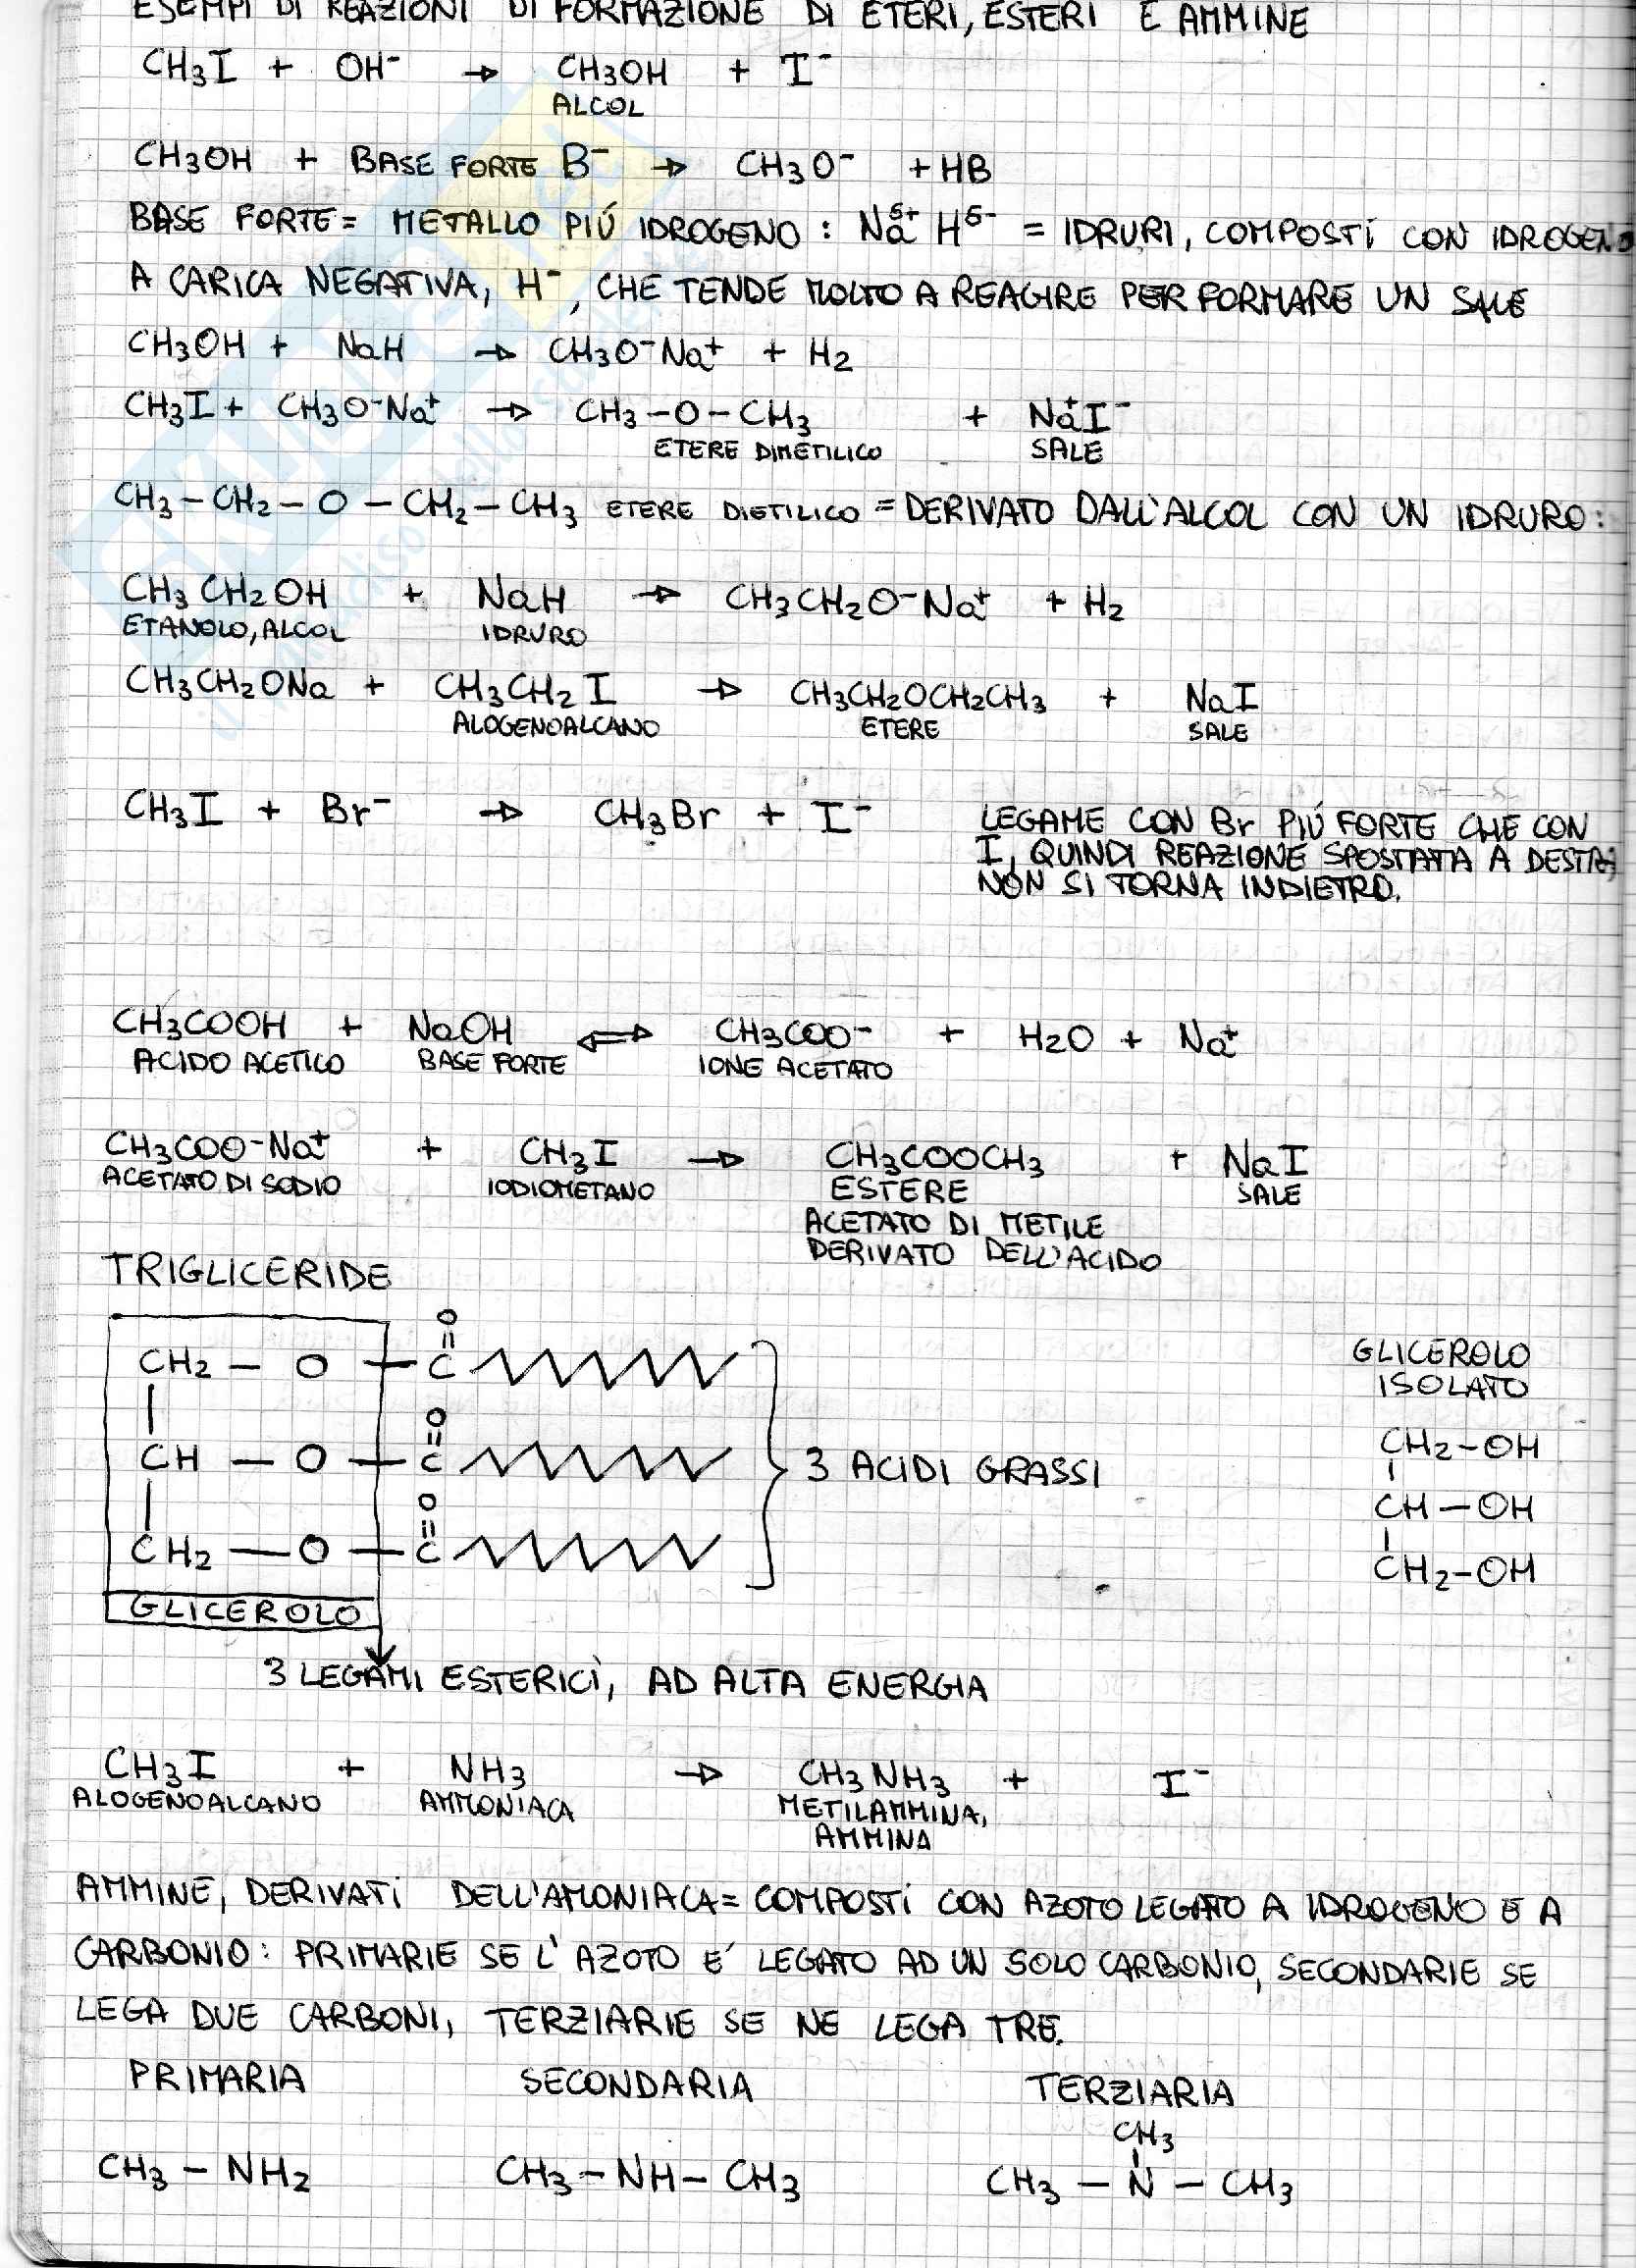 ESEMPI DI REAZIONI DI FORMAZIONE DI ETERI, ESTERI E AMMINE
CH3I + OH- → CH3OH + I-
ALCOL
CH3OH + BASE FORTE B- → CH3O- + HB
BASE FORTE = METALLO PIÚ IDROGENO : Naδ+ Hδ- = IDRURI, COMPOSTI CON IDROGENO
A CARICA NEGATIVA, H-, CHE TENDE MOLTO A REAGIRE PER FORMARE UN SALE
CH3OH + NaH → CH3O-Na+ + H2
CH3I + CH3O-Na+ → CH3-O-CH3 + Na+I-
ETERE DIMETILICO SALE
CH3-CH2-O-CH2-CH3 ETERE DIETILICO = DERIVATO DALL'ALCOL CON UN IDRURO:
CH3CH2OH + NaH → CH3CH2O-Na+ + H2
ETANOLO, ALCOL IDRURO
CH3CH2ONa + CH3CH2I → CH3CH2OCH2CH3 + NaI
ALOGENOALCANO ETERE SALE
CH3I + Br- → CH3Br + I- LEGAME CON Br PIÚ FORTE CHE CON
I, QUINDI REAZIONE SPOSTATA A DESTRA,
NON SI TORNA INDIETRO.
CH3COOH + NaOH ⇌ CH3COO- + H2O + Na+
ACIDO ACETICO BASE FORTE IONE ACETATO
CH3COO-Na+ + CH3I → CH3COOCH3 + NaI
ACETATO DI SODIO IODIOMETANO ESTERE SALE
ACETATO DI METILE
DERIVATO DELL'ACIDO
TRIGLICERIDE
O
CH2 - O - C
O
CH - O - C 3 ACIDI GRASSI
O
CH2 - O - C
GLICEROLO
GLICEROLO
ISOLATO
CH2-OH
CH-OH
CH2-OH
3 LEGAMI ESTERICI, AD ALTA ENERGIA
CH3I + NH3 → CH3NH3 + I-
ALOGENOALCANO AMMONIACA METILAMMINA,
AMMINA
AMMINE, DERIVATI DELL'AMONIACA = COMPOSTI CON AZOTO LEGATO A IDROGENO E A
CARBONIO: PRIMARIE SE L'AZOTO E' LEGATO AD UN SOLO CARBONIO, SECONDARIE SE
LEGA DUE CARBONI, TERZIARIE SE NE LEGA TRE.
PRIMARIA SECONDARIA TERZIARIA
CH3
CH3 - NH2 CH3 - NH - CH3 CH3 - N - CH3